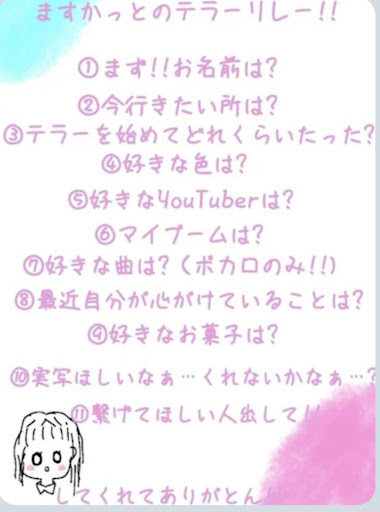 ますかっとのテラーリレー!!
①まず!!お名前は?
②今行きたい所は?
③テラーを始めてどれくらいたった?
④好きな色は?
⑤好きなYouTuberは?
⑥マイブームは?
⑦好きな曲は?(ボカロのみ!!)
⑧最近自分が心がけていることは?
⑨好きなお菓子は?
⑩実写ほしいなぁ…くれないかなぁ…?
⑪繋げてほしい人出して!!
してくれてありがとん!!